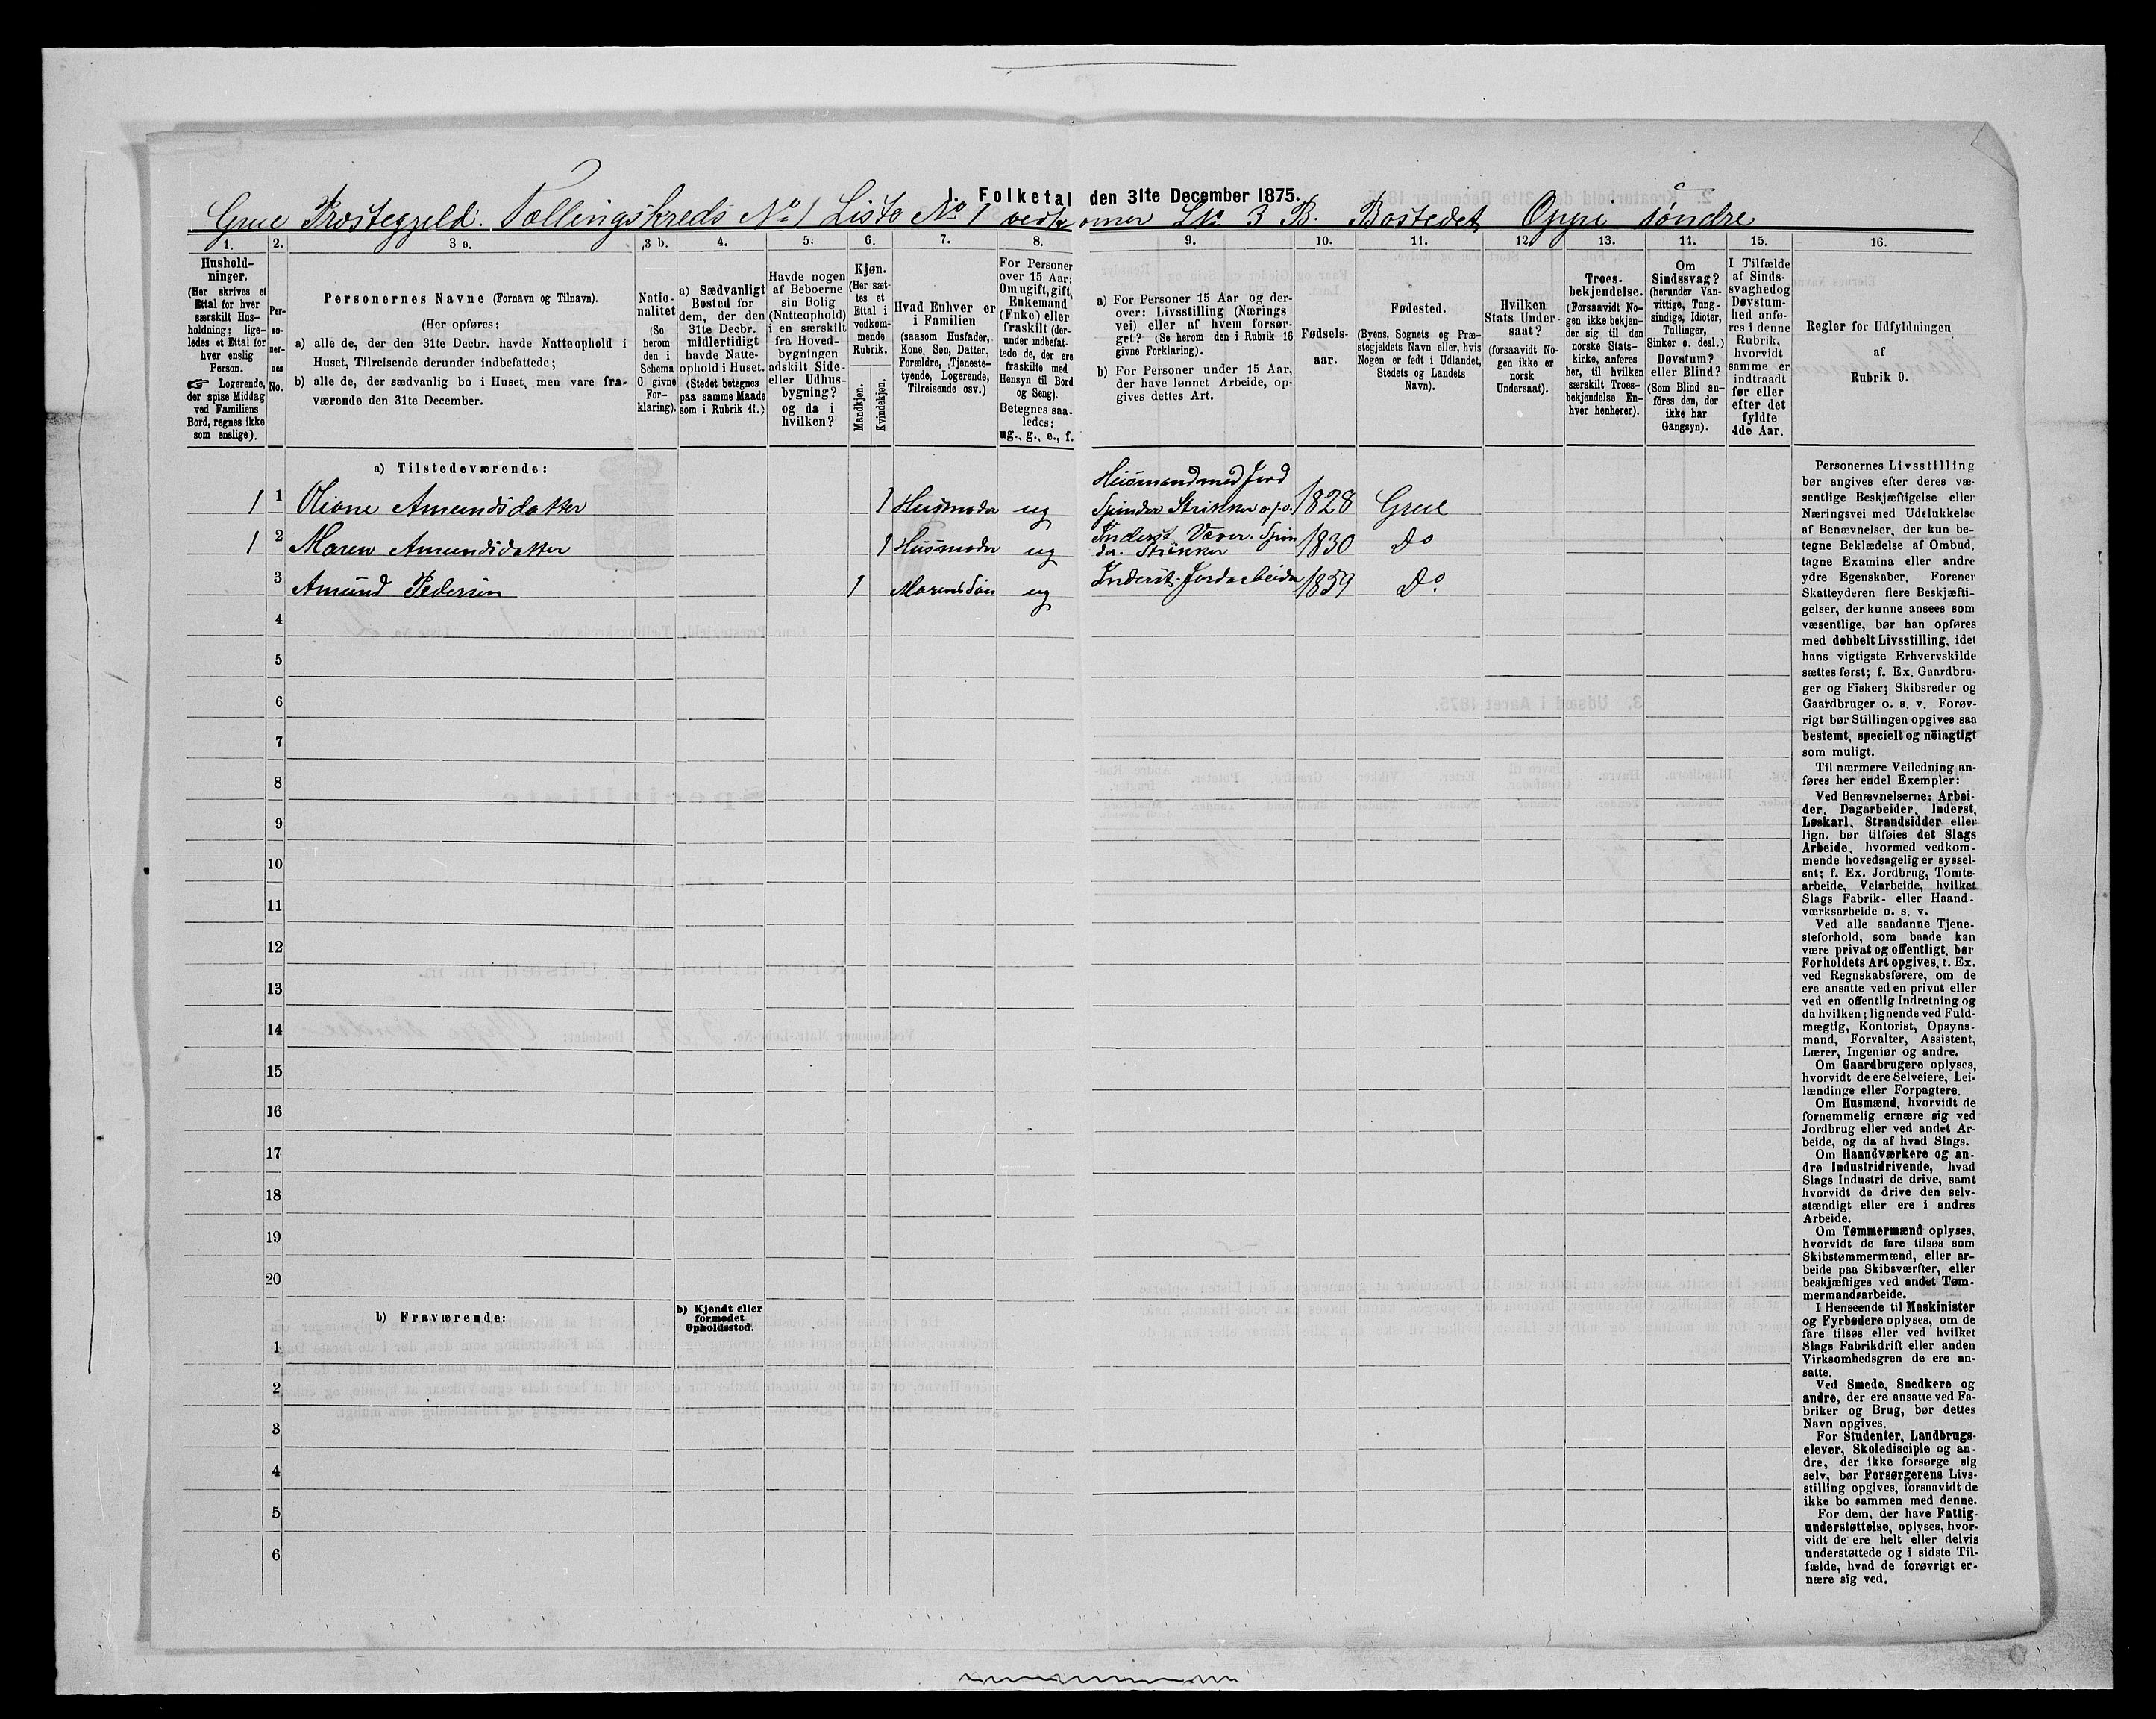 1. Folketal den 31te December 1875.
Grue Præstegjeld. Tællingskreds No 1 Liste No 1 vedkommer 3 B. Bostedet Oppi söndre
1. 2. 3 a. 3 b. 4. 5. 6. 7. 8. 9. 10. 11. 12. 13. 14. 15. 16.
Hushold-
ninger.
(Her skrives et
Ettal for hver
særskilt Hus-
holdning; lige-
ledes et Ettal for
hver enslig
Person.
☞ Logerende,
der spise Middag
ved Familiens
Bord, regnes ikke
som enslige).
Per-
so-
ner-
nes
No.
Personernes Navne (Fornavn og Tilnavn).
(Her opføres:
a) alle de, der den 31te Decbr. havde Natteophold i
Huset, Tilreisende derunder indbefattede;
b) alle de, der sædvanlig bo i Huset, men vare fra-
værende den 31te December.
Natio-
nalitet
(Se
herom
den i
Schema
O givne
For-
klaring).
a) Sædvanligt
Bosted for
dem, der den
31te Decbr.
midlertidigt
havde Natte-
ophold i Huset.
(Stedet betegnes
paa samme Maade
som i Rubrik 11.)
Havde nogen
af Beboerne
sin Bolig
(Natteophold)
i en særskilt
fra Hoved-
bygningen
adskilt Side-
eller Udhus-
bygning?
og da i
hvilken?
Kjøn.
(Her sæt-
tes et
Ettal i
vedkom-
mende
Rubrik.
Mandkjøn.
Kvindekjøn.
Hvad Enhver er
i Familien
(saasom Husfader,
Kone, Søn, Datter,
Forældre, Tjeneste-
tyende, Logerende,
Tilreisende osv.)
For Personer
over 15 Aar:
Om ugift, gift,
Enkemand
(Enke) eller
fraskilt (der-
under indbefat-
tede de, der ere
fraskilte med
Hensyn til Bord
og Seng).
Betegnes saa-
ledes:
ug., g., e., f.
a) For Personer 15 Aar og der-
over: Livsstilling (Nærings
vei) eller af hvem forsør-
get? (Se herom den i Rubrik 16
givne Forklaring).
b) For Personer under 15 Aar,
der have lønnet Arbeide, op-
gives dettes Art.
Fødsels-
aar.
Fødested.
(Byens, Sognets og Præ-
stegjeldets Navn eller, hvis
Nogen er født i Udlandet,
Stedets og Landets
Navn).
Hvilken
Stats Under-
saat?
(forsaavidt No-
gen ikke er
norsk
Undersaat).
Troes-
bekjendelse.
(Forsaavidt No-
gen ikke bekjen-
der sig til den
norske Stats-
kirke, anføres
her, til hvilken
særskilt Troes-
bekjendelse En-
hver henhører).
Om
Sindssvag?
(herunder Van-
vittige, Tung-
sindige, Idioter,
Tullinger,
Sinker o. desl.)
Døvstum?
eller Blind?
(Som Blind an-
föres den, der
ikke har
Gangsyn).
I Tilfælde
af Sinds-
svaghed og
Døvstum-
hed anfø-
res i denne
Rubrik,
hvorvidt
samme er
indtraadt
før eller
efter det
fyldte
4de Aar.
Regler for Udfyldningen
af
Rubrik 9.
a) Tilstedeværende:
Husmand med Jord
1 1 Oliane Amundsdatter 1 Husmoder ug Spinder Strikker o.j.o. 1828 Grue
1 2 Maren Amundsdatter 1 Husmoder ug Inderst Væver. Spin
der. Strikker 1830 Do
3 Amund Pedersen 1 Marens Søn ug Inderst. Jordarbeider 1859 Do.
4
5
6
7
8
9
10
11
12
13
14
15
16
17
18
19
20
b) Fraværende:
b) Kjendt eller
formodet
Opholdssted.
1
2
3
4
5
6
Personernes Livsstilling
bør angives efter deres væ-
sentlige Beskjæftigelse eller
Næringsvei med Udelukkelse
af Benævnelser, der kun be-
tegne Beklædelse af Ombud,
tagne Examina eller andre
ydre Egenskaber. Forener
Skatteyderen flere Beskjæfti-
gelser, der kunne ansees som
væsentlige, bør han opføres
med dobbelt Livsstilling, idet
hans vigtigste Erhvervskilde
sættes først; f. Ex. Gaardbru-
ger og Fisker; Skibsreder og
Gaardbruger o. s. v. Forøv-
rigt bør Stillingen opgives saa
bestemt, specielt og nöiagtigt
som muligt.
Til nærmere Veiledning an-
føres her endel Exempler:
Ved Benævnelserne: Arbei-
der, Dagarbeider, Inderst,
Løskarl, Strandsidder eller
lign. bør tilføies det Slags
Arbeide, hvormed vedkom-
mende hovedsagelig er syssel-
sat; f. Ex. Jordbrug, Tomte-
arbeide, Veiarbeide, hvilket
Slags Fabrik- eller Haand-
værksarbeide o. s. v.
Ved alle saadanne Tjene-
steforhold, som baade kan
være privat og offentligt, bør
Forholdets Art opgives, t. Ex.
ved Regnskabsførere, om de
ere ansatte ved en privat eller
ved en offentlig Indretning og
da hvilken; lignende ved Fuld-
mægtig, Kontorist, Opsyns-
mand, Forvalter, Assistent,
Lærer, Ingeniør og andre.
Om Gaardbrugere oplyses,
hvorvidt de ere Selveiere, Lei-
lændinge eller Forpagtere.
Om Husmænd, hvorvidt de
fornemmelig ernære sig ved
Jordbrug eller ved andet Ar-
beide, og da af hvad Slags.
Om Haandværkere og an-
dre Industridrivende, hvad
Slags Industri de drive, samt
hvorvidt de drive den selv-
stændigt eller ere i andres
Arbeide.
Om Tømmermænd oplyses,
hvorvidt de fare tilsøs som
Skibstømmermænd, eller ar-
beide paa Skibsværfter, eller
beskjæftiges ved andet Tøm-
mermandsarbeide.
I Henseende til Maskinister
og Fyrbødere oplyses, om de
fare tilsøs eller ved hvilket
Slags Fabrikdrift eller anden
Virksomhedsgren de ere an-
satte.
Ved Smede, Snedkere og
andre, der ere ansatte ved Fa-
briker og Brug, bør dettes
Navn opgives.
For Studenter, Landbrugs-
elever, Skoledisciple og an-
dre, der ikke forsørge sig
selv, bør Forsørgerens Livs-
stilling opgives, forsaavidt de
ikke bo sammen med denne.
For dem, der have Fattig-
understøttelse, oplyses, hvor-
vidt de ere helt eller delvis
understøttede og i sidste Til-
fælde, hvad de forøvrigt er-
nære sig ved.